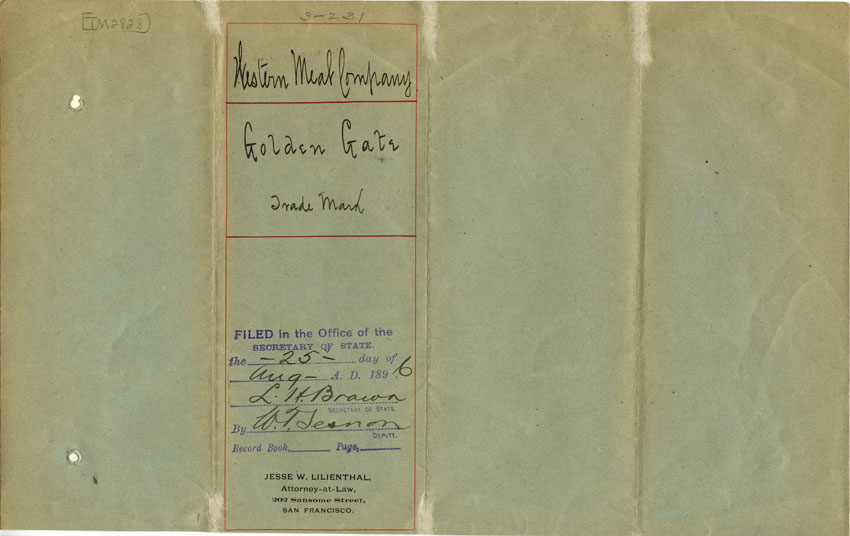 TM2828
3-231
Western Meat Company
Golden Gate
Trade Mark
FILED in the Office of the
SECRETARY OF STATE.
the -25- day of
Aug- A. D. 1896
L. H. Brown
SECRETARY OF STATE.
By W. T.
DEPUTY.
Record Book, Page,
JESSE W. LILIENTHAL,
Attorney-at-Law,
202 Sansome Street,
SAN FRANCISCO.